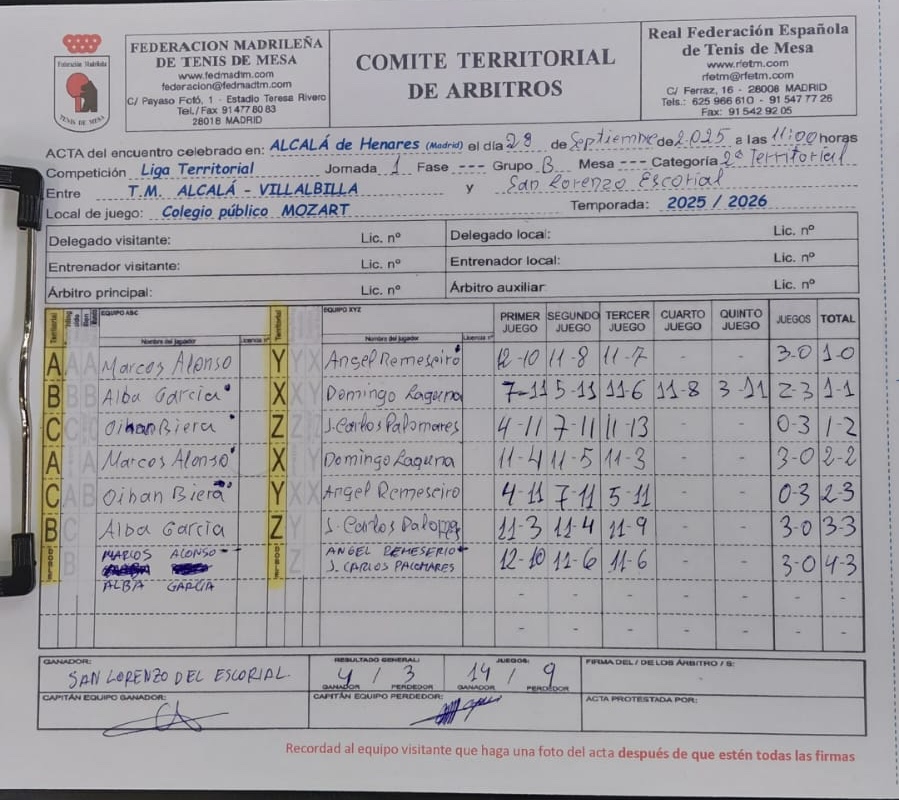 Federación Madrileña
TENIS DE MESA
FEDERACION MADRILEÑA
DE TENIS DE MESA
www.fedmadtm.com
federacion@fedmadtm.com
C/ Payaso Fofó, 1 - Estadio Teresa Rivero
Tel./Fax 91 477 80 83
28018 MADRID
COMITE TERRITORIAL
DE ARBITROS
Real Federación Española
de Tenis de Mesa
www.rfetm.com
rfetm@rfetm.com
C/ Ferraz, 16 - 28008 MADRID
Tels.: 625 966 610 - 91 547 77 26
Fax: 91 542 92 05
ACTA del encuentro celebrado en: ALCALÁ de Henares (Madrid) el día 28 de Septiembre de 2.025 a las 11:00 horas
Competición Liga Territorial Jornada 1 Fase --- Grupo B Mesa --- Categoría 2ª Territorial
Entre T.M. ALCALÁ - VILLALBILLA y San Lorenzo Escorial
Local de juego: Colegio público MOZART Temporada: 2025 / 2026
Delegado visitante: Lic. nº Delegado local: Lic. nº
Entrenador visitante: Lic. nº Entrenador local: Lic. nº
Árbitro principal: Lic. nº Árbitro auxiliar: Lic. nº
Territorial EQUIPO ABC Nombre del jugador Licencia nº Territorial EQUIPO XYZ Nombre del jugador Licencia nº PRIMER JUEGO SEGUNDO JUEGO TERCER JUEGO CUARTO JUEGO QUINTO JUEGO JUEGOS TOTAL
A Marcos Alonso Y Angel Remeseiro 12-10 11-8 11-7 - - 3-0 1-0
B Alba Garcia X Domingo Laguna 7-11 5-11 11-6 11-8 3-11 2-3 1-1
C Oihan Biera Z J. Carlos Palomares 4-11 7-11 11-13 - - 0-3 1-2
A Marcos Alonso X Domingo Laguna 11-4 11-5 11-3 - - 3-0 2-2
C Oihan Biera Y Angel Remeseiro 4-11 7-11 5-11 - - 0-3 2-3
B Alba Garcia Z J. Carlos Palomares 11-3 11-4 11-9 - - 3-0 3-3
MARCOS ALONSO ANGEL REMESERIO
J. CARLOS PALOMARES 12-10 11-6 11-6 - - 3-0 4-3
ALBA GARCÍA
GANADOR: SAN LORENZO DEL ESCORIAL
RESULTADO GENERAL: 4 / 3
GANADOR PERDEDOR
JUEGOS: 14 / 9
GANADOR PERDEDOR
FIRMA DEL / DE LOS ÁRBITRO / S:
CAPITÁN EQUIPO GANADOR:
CAPITÁN EQUIPO PERDEDOR:
ACTA PROTESTADA POR:
Recordad al equipo visitante que haga una foto del acta después de que estén todas las firmas